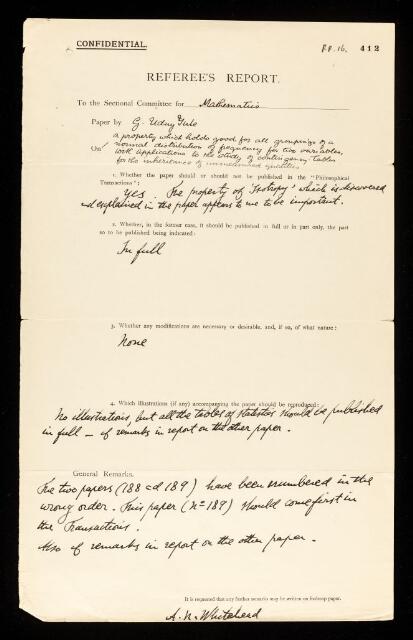 CONFIDENTIAL.
RR. 16. 412
REFEREE'S REPORT.
To the Sectional Committee for Mathematics
Paper by G. Udny Yule
On a property which holds good for all groupings of a
normal distribution of frequency for two variables,
with applications to the study of contingency tables
for the inheritance of unmeasured qualities.
1. Whether the paper should or should not be published in the "Philosophical
Transactions":
Yes. The property of 'Isotropy' which is discovered
and explained in the paper appears to me to be important.
2. Whether, in the former case, it should be published in full or in part only, the part
so to be published being indicated:
In full
3. Whether any modifications are necessary or desirable, and, if so, of what nature:
None
4. Which illustrations (if any) accompanying the paper should be reproduced:
No illustrations, but all the tables of statistics should be published
in full — cf remarks in report on the other paper.
General Remarks.
The two papers (188 and 189) have been numbered in the
wrong order. This paper (no 189) should come first in
the Transactions.
Also cf remarks in report on the other paper.
It is requested that any further remarks may be written on foolscap paper.
A. N. Whitehead